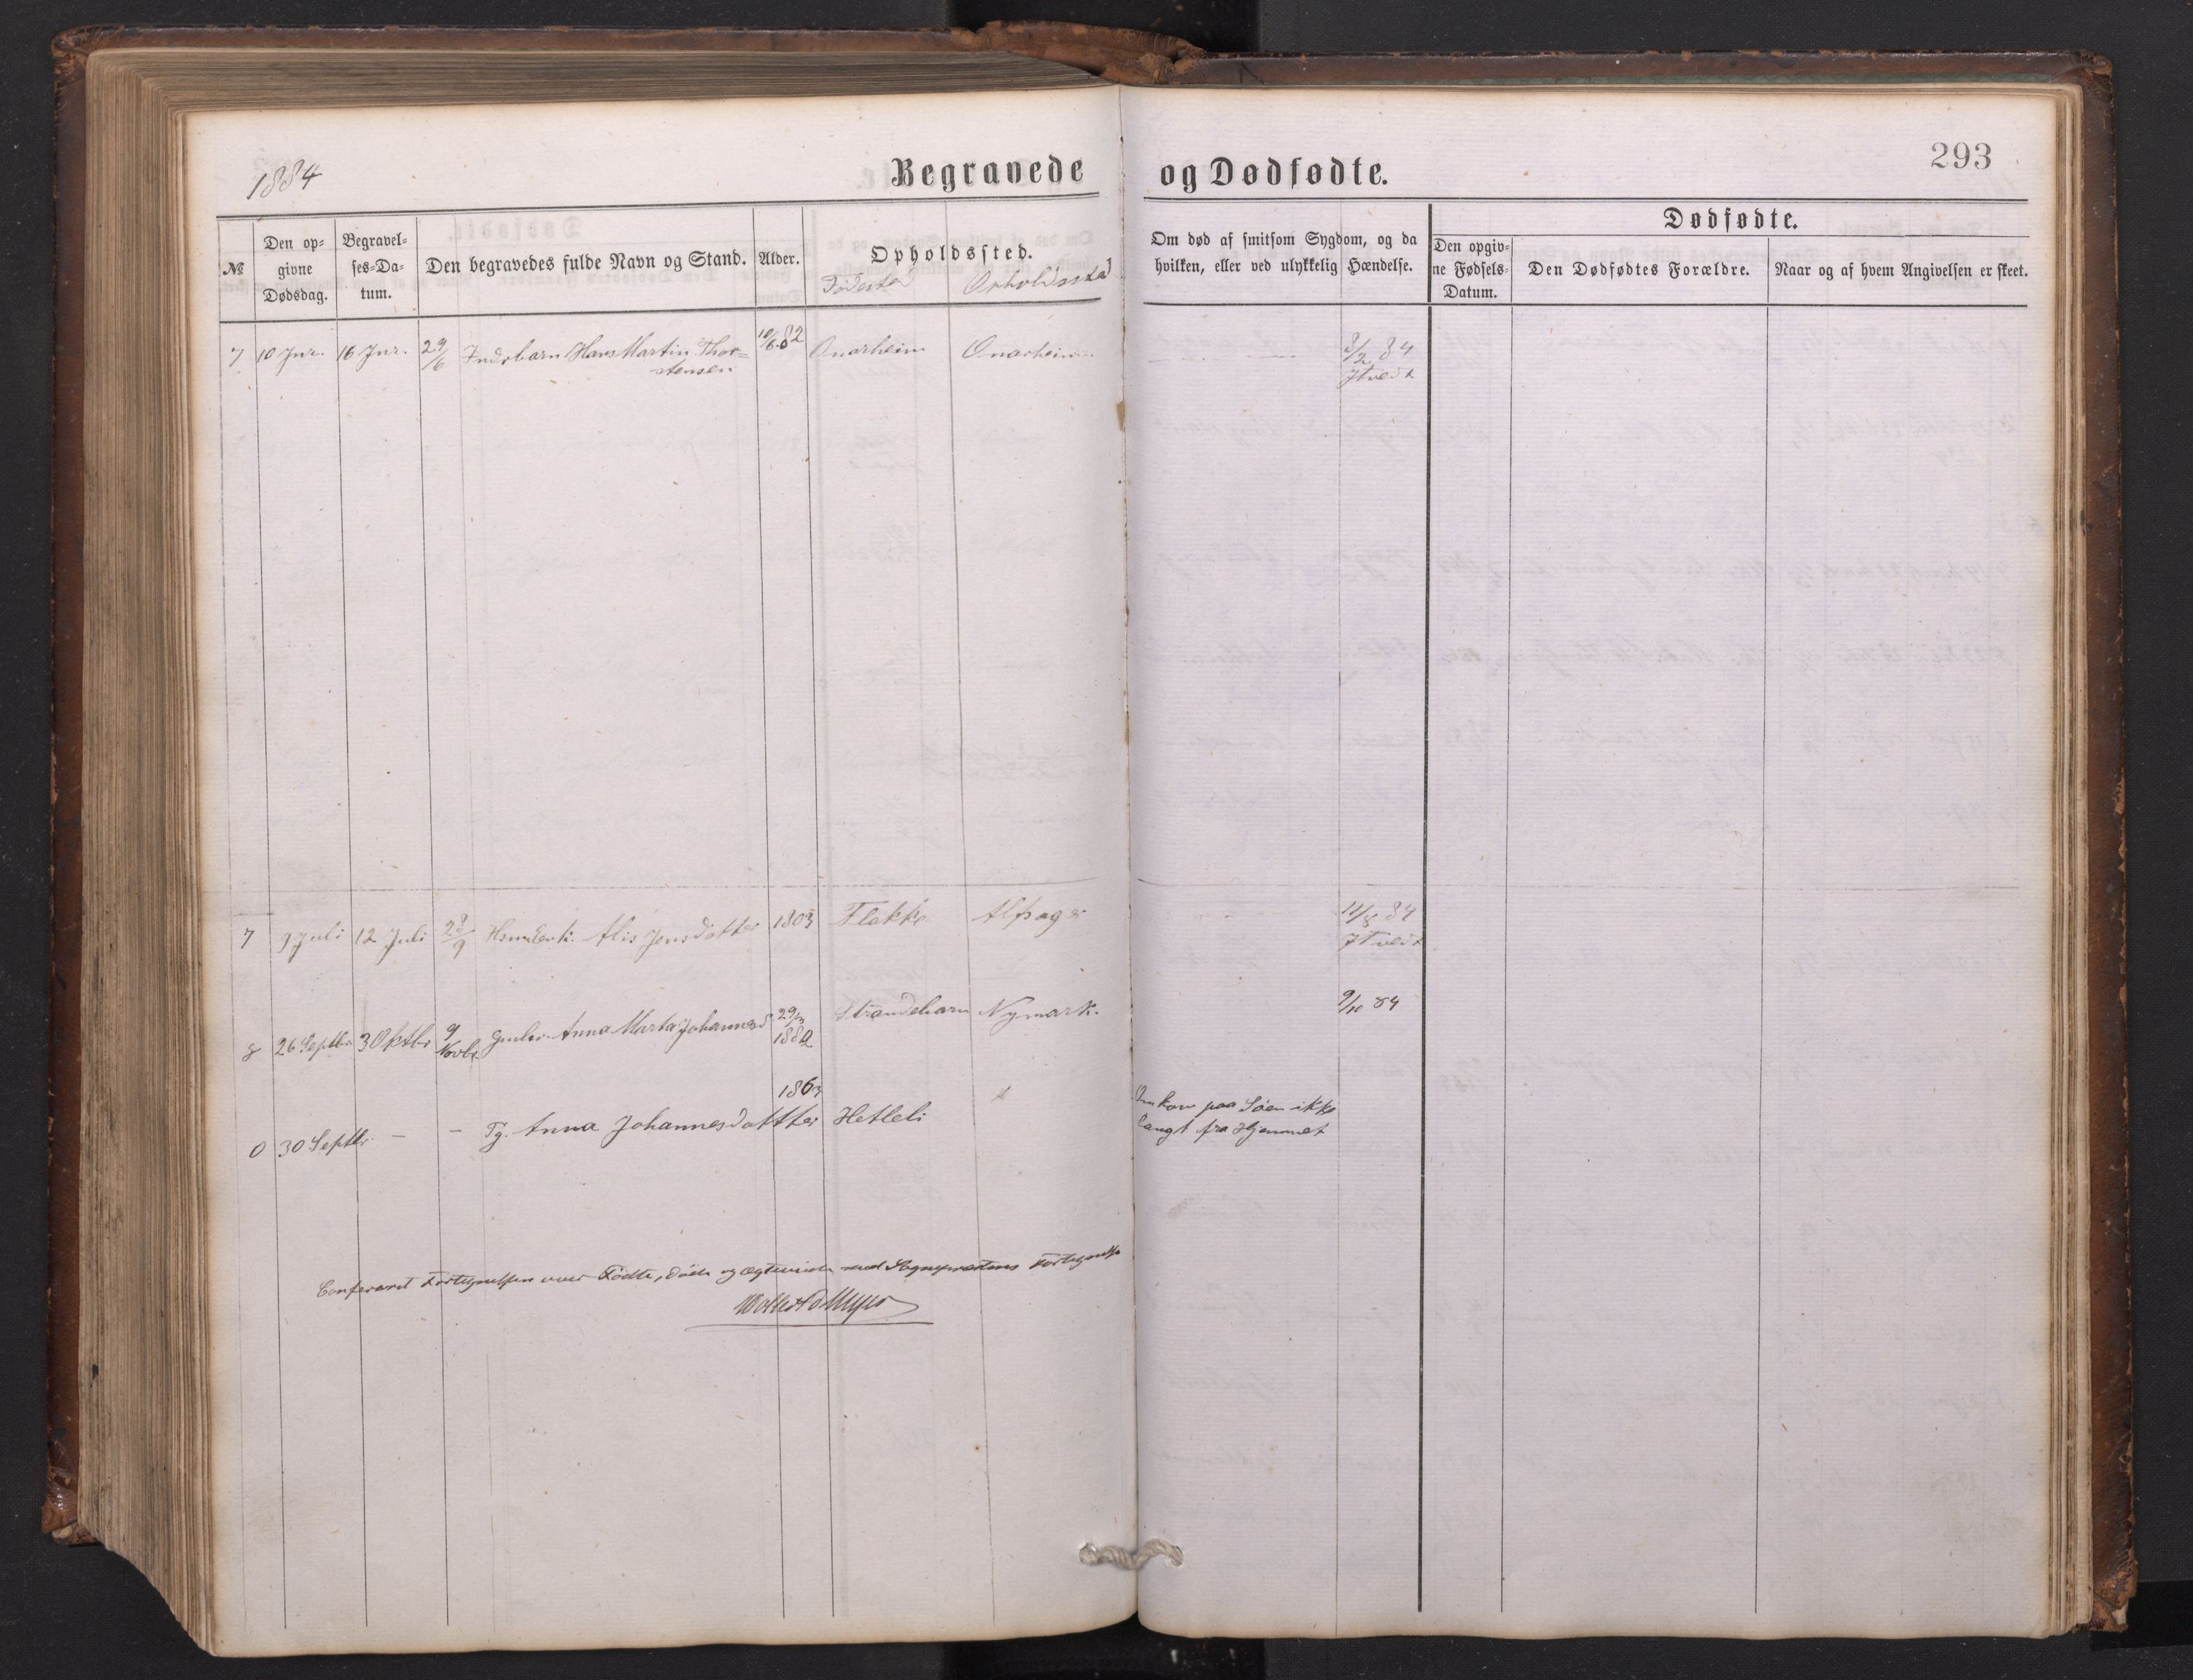 1884
Begravede og Dødfødte.
293
№
Den op=
givne
Dødsdag.
Begravel=
ses=Da=
tum.
Den begravedes fulde Navn og Stand.
Alder.
Opholdssted.
Fødested
Opholdssted
Om død af smitsom Sygdom, og da
hvilken, eller ved ulykkelig Hændelse.
Dødfødte.
Den opgiv=
ne Fødsels=
Datum.
Den Dødfødtes Forældre.
Naar og af hvem Angivelsen er skeet.
7 10 Jnr. 16 Jnr. 29/6 Indrbarn Hans Martin Thor= 10/6.82 Onarheim Onarheim 8/2 84
stensen JTvedt
7 9 Juli 12 Juli 28/9 Alis Jensdatter 1803 Flakke Alsager 11/8 84
JTvedt
8 26 Septbr 3 Oktbr 9 Novbr Anna Marta Johannesd 29/3 1882 Strandebarm Nymark. 9/10 84
1863
0 30 Septbr. — — Pg. Anna Johannesdatter Hetleli Omkom paa Søen ikke
langt fra Hjemmet
Confereret Fortegnelsen over Fødte, døde og ægteviede med Sognepræstens Fortegnelse